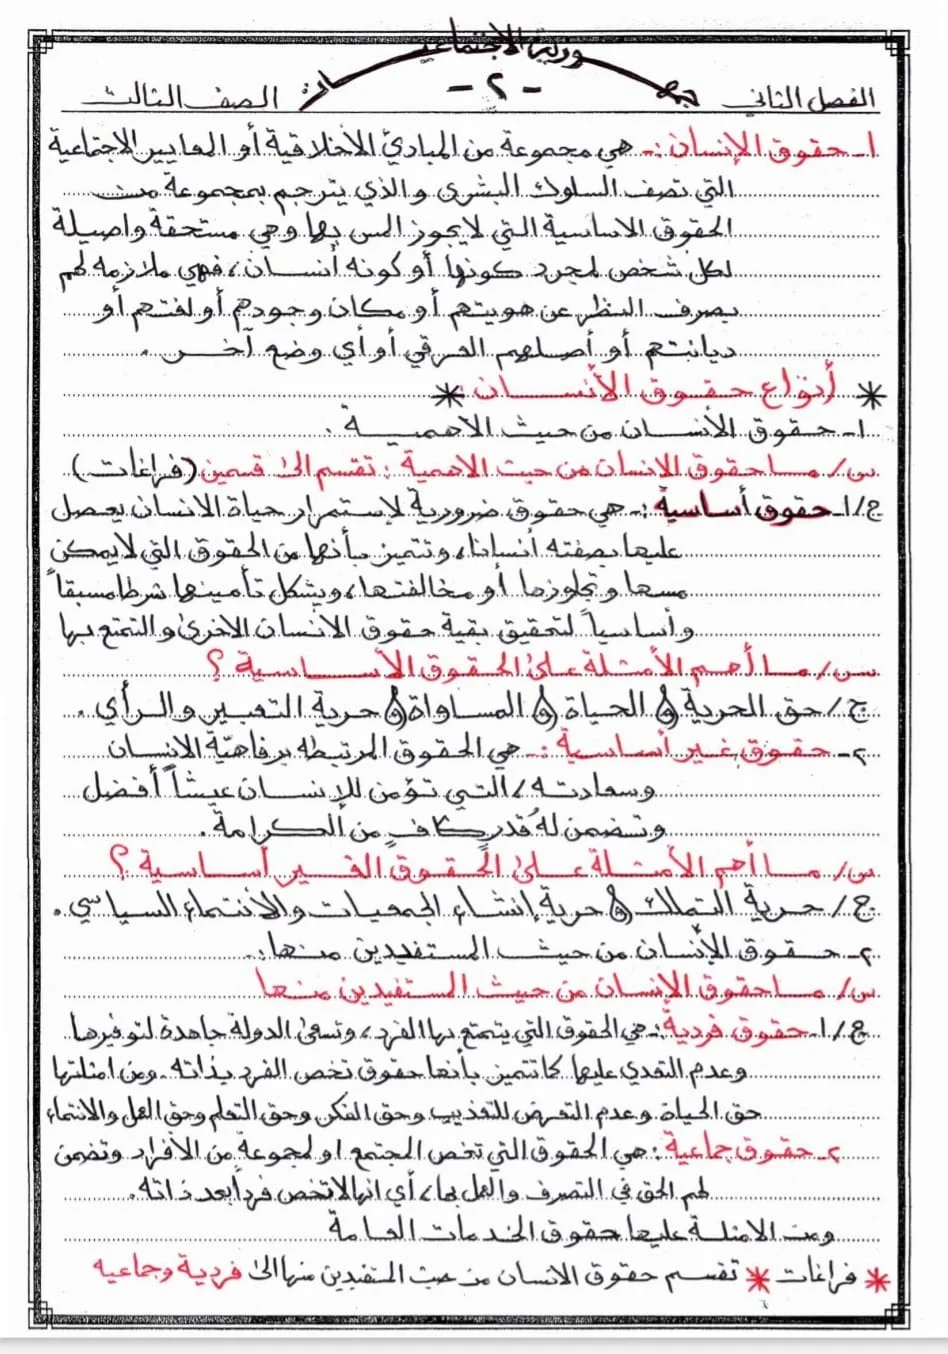 وردية الاجتماعية
الفصل الثاني - ٢ - الصف الثالث
١- حقوق الإنسان :- هي مجموعة من المبادئ الأخلاقية أو المعايير الاجتماعية
التي تصف السلوك البشري والذي يترجم بمجموعة من
الحقوق الاساسية التي لايجوز المس بها وهي مستحقة واصيلة
لكل شخص لمجرد كونها أو كونه أنسان، فهي ملازمه لهم
بصرف النظر عن هويتهم أو مكان وجودهم أو لغتهم أو
ديانتهم أو أصلهم العرقي أو أي وضع آخر .
* أنواع حقوق الأنسان *
١- حقوق الأنسان من حيث الاهمية .
س/ ما حقوق الانسان من حيث الاهمية : تقسم الى قسمين (فراغات)
ج/١- حقوق أساسية :- هي حقوق ضرورية لاستمرار حياة الانسان يحصل
عليها بصفته أنسانا، وتتميز بأنها من الحقوق التي لايمكن
مسها وتجاوزها أو مخالفتها، ويشكل تأمينها شرطا مسبقاً
وأساسياً لتحقيق بقية حقوق الانسان الاخرى والتمتع بها
س/ ما أهم الأمثلة على الحقوق الأساسية ؟
ج/ حق الحرية & الحياة & المساواة & حرية التعبير والرأي .
٢- حقوق غير أساسية :- هي الحقوق المرتبطه برفاهيّة الانسان
وسعادته / التي تؤمن للإنسان عيشاً أفضل
وتضمن لهُ قدر كافٍ من الكرامة .
س/ ما أهم الأمثلة على الحقوق الغير أساسية ؟
ج/ حرية التملك & حرية إنشاء الجمعيات والانتماء السياسي .
٢- حقوق الإنسان من حيث المستفيدين منها :.
س/ ما حقوق الإنسان من حيث المستفيدين منها
ج/١- حقوق فردية :- هي الحقوق التي يتمتع بها الفرد، وتسعى الدولة جاهدة لتوفيرها
وعدم التعدي عليها كما تتميز بأنها حقوق تخص الفرد بذاته. ومن امثلتها
حق الحياة وعدم التعرض للتعذيب وحق الفكر وحق التعلم وحق العمل والانتماء
٢- حقوق جماعية : هي الحقوق التي تخص المجتمع او لمجموعة من الأفراد وتضمن
لهم الحق في التصرف والعمل بها، أي انها لاتخص فرداً بعد ذاته .
ومن الامثلة عليها حقوق الخدمات العامة
* فراغات * تقسم حقوق الانسان من حيث المستفيدين منها الى فردية وجماعيه